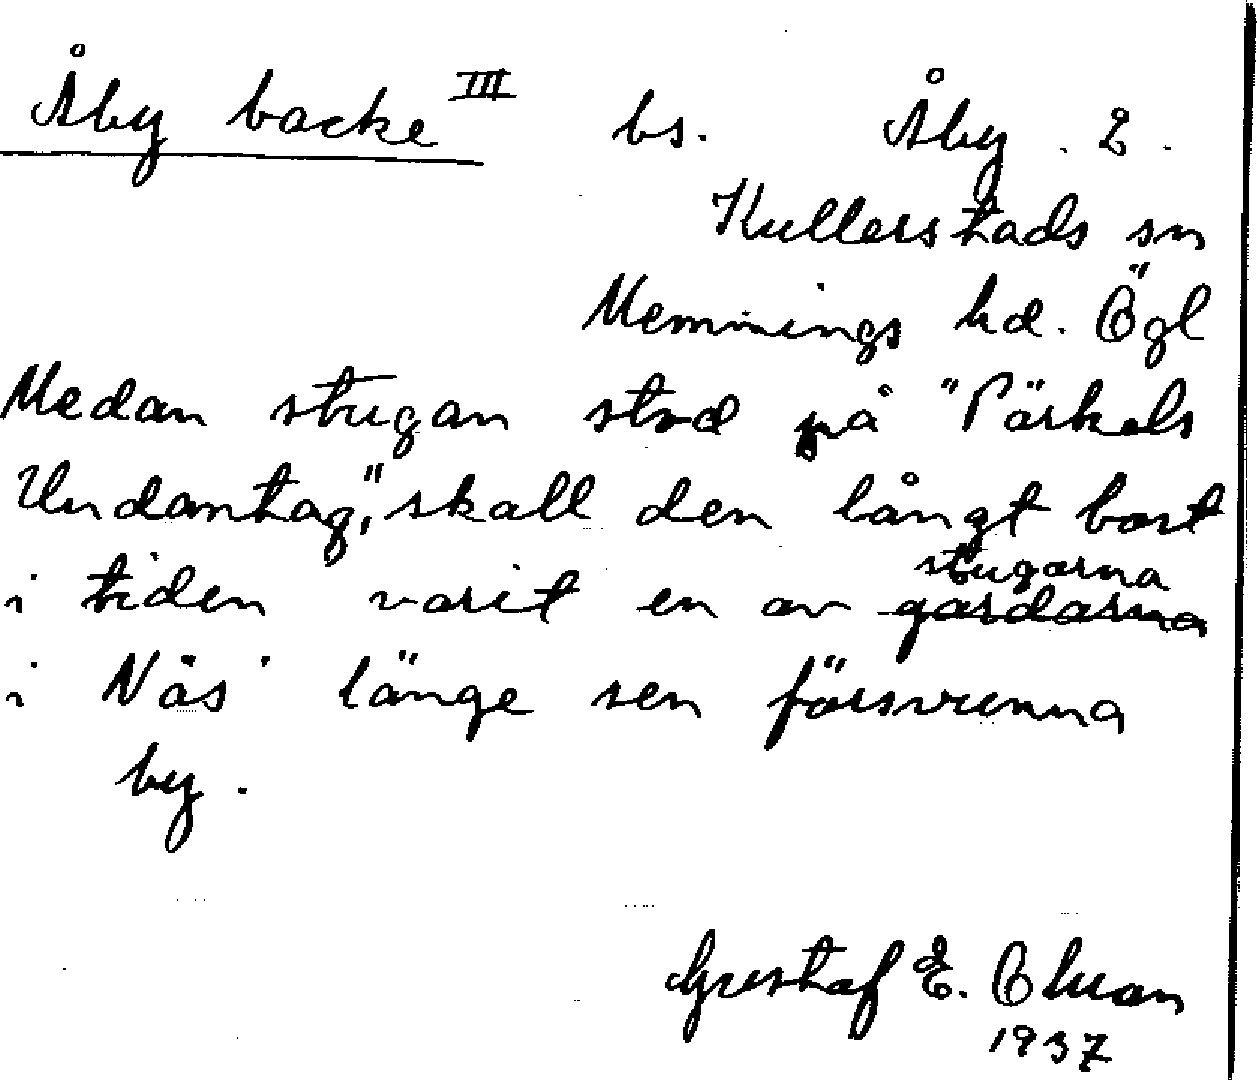 Åby backe III bs. Åby . 2 .
Kullerstads sn
Memmings hd. Ögl
Medan stugan stod på "Pärkels
Undantag", skall den långt bort
stugarna
i tiden varit en av gardarna
i Näs länge sen försvunna
by .
Gustaf E.
1937